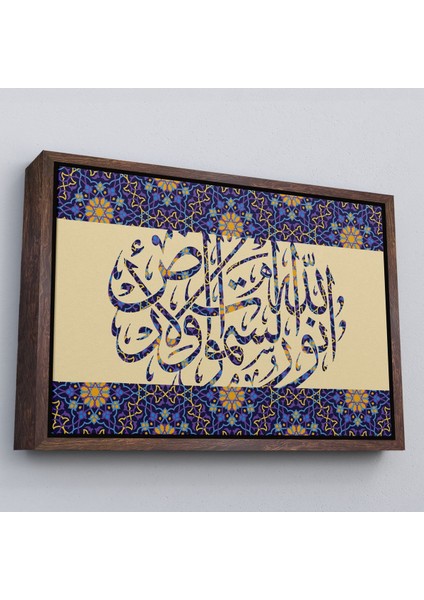 الله نور السموات والأرض